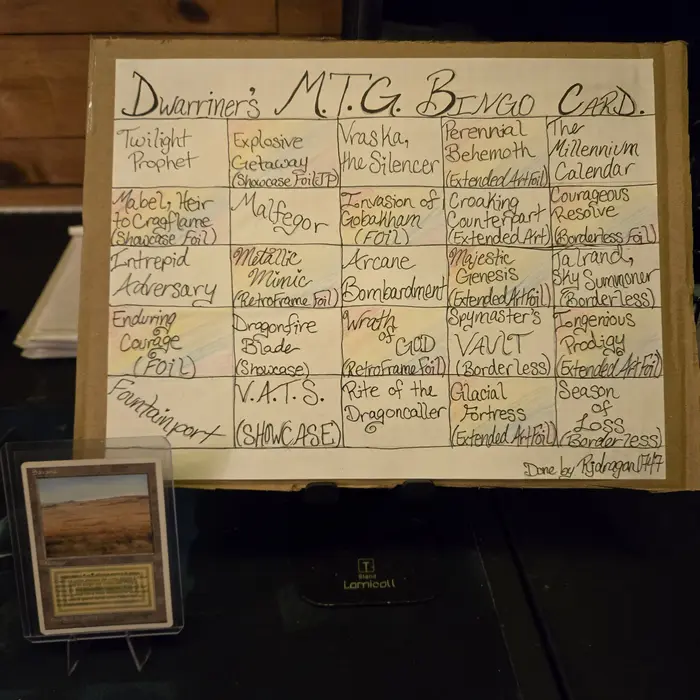 Dwarriner's M.T.G. Bingo Card.
Twilight
Prophet
Explosive
Getaway
(Showcase FoilJP)
Vraska,
the Silencer
Perennial
Behemoth
(Extended ArtFoil)
The
Millennium
Calendar
Mabel, Heir
to Cragflame
(Showcase Foil)
Malfegor
Invasion of
Gobakham
(FOIL)
Croaking
Counterpart
(Extended Art)
Courageous
Resolve
(Borderless Foil)
Intrepid
Adversary
Metallic
Mimic
(RetroFrame Foil)
Arcane
Bombardment
Majestic
Genesis
(Extended ArtFoil)
Talrand,
Sky Summoner
(Borderless)
Enduring
Courage
(FOIL)
Dragonfire
Blade
(Showcase)
Wrath
of
GOD
(RetroFrame Foil)
Spymaster's
VAULT
(Borderless)
Ingenious
Prodigy
(Extended ArtFoil)
Fountainport
V.A.T.S.
(SHOWCASE)
Rite of the
Dragoncaller
Glacial
Fortress
(Extended ArtFoil)
Season
of
Loss
(Borderless)
Done by Rjdragan0747
T
Stand